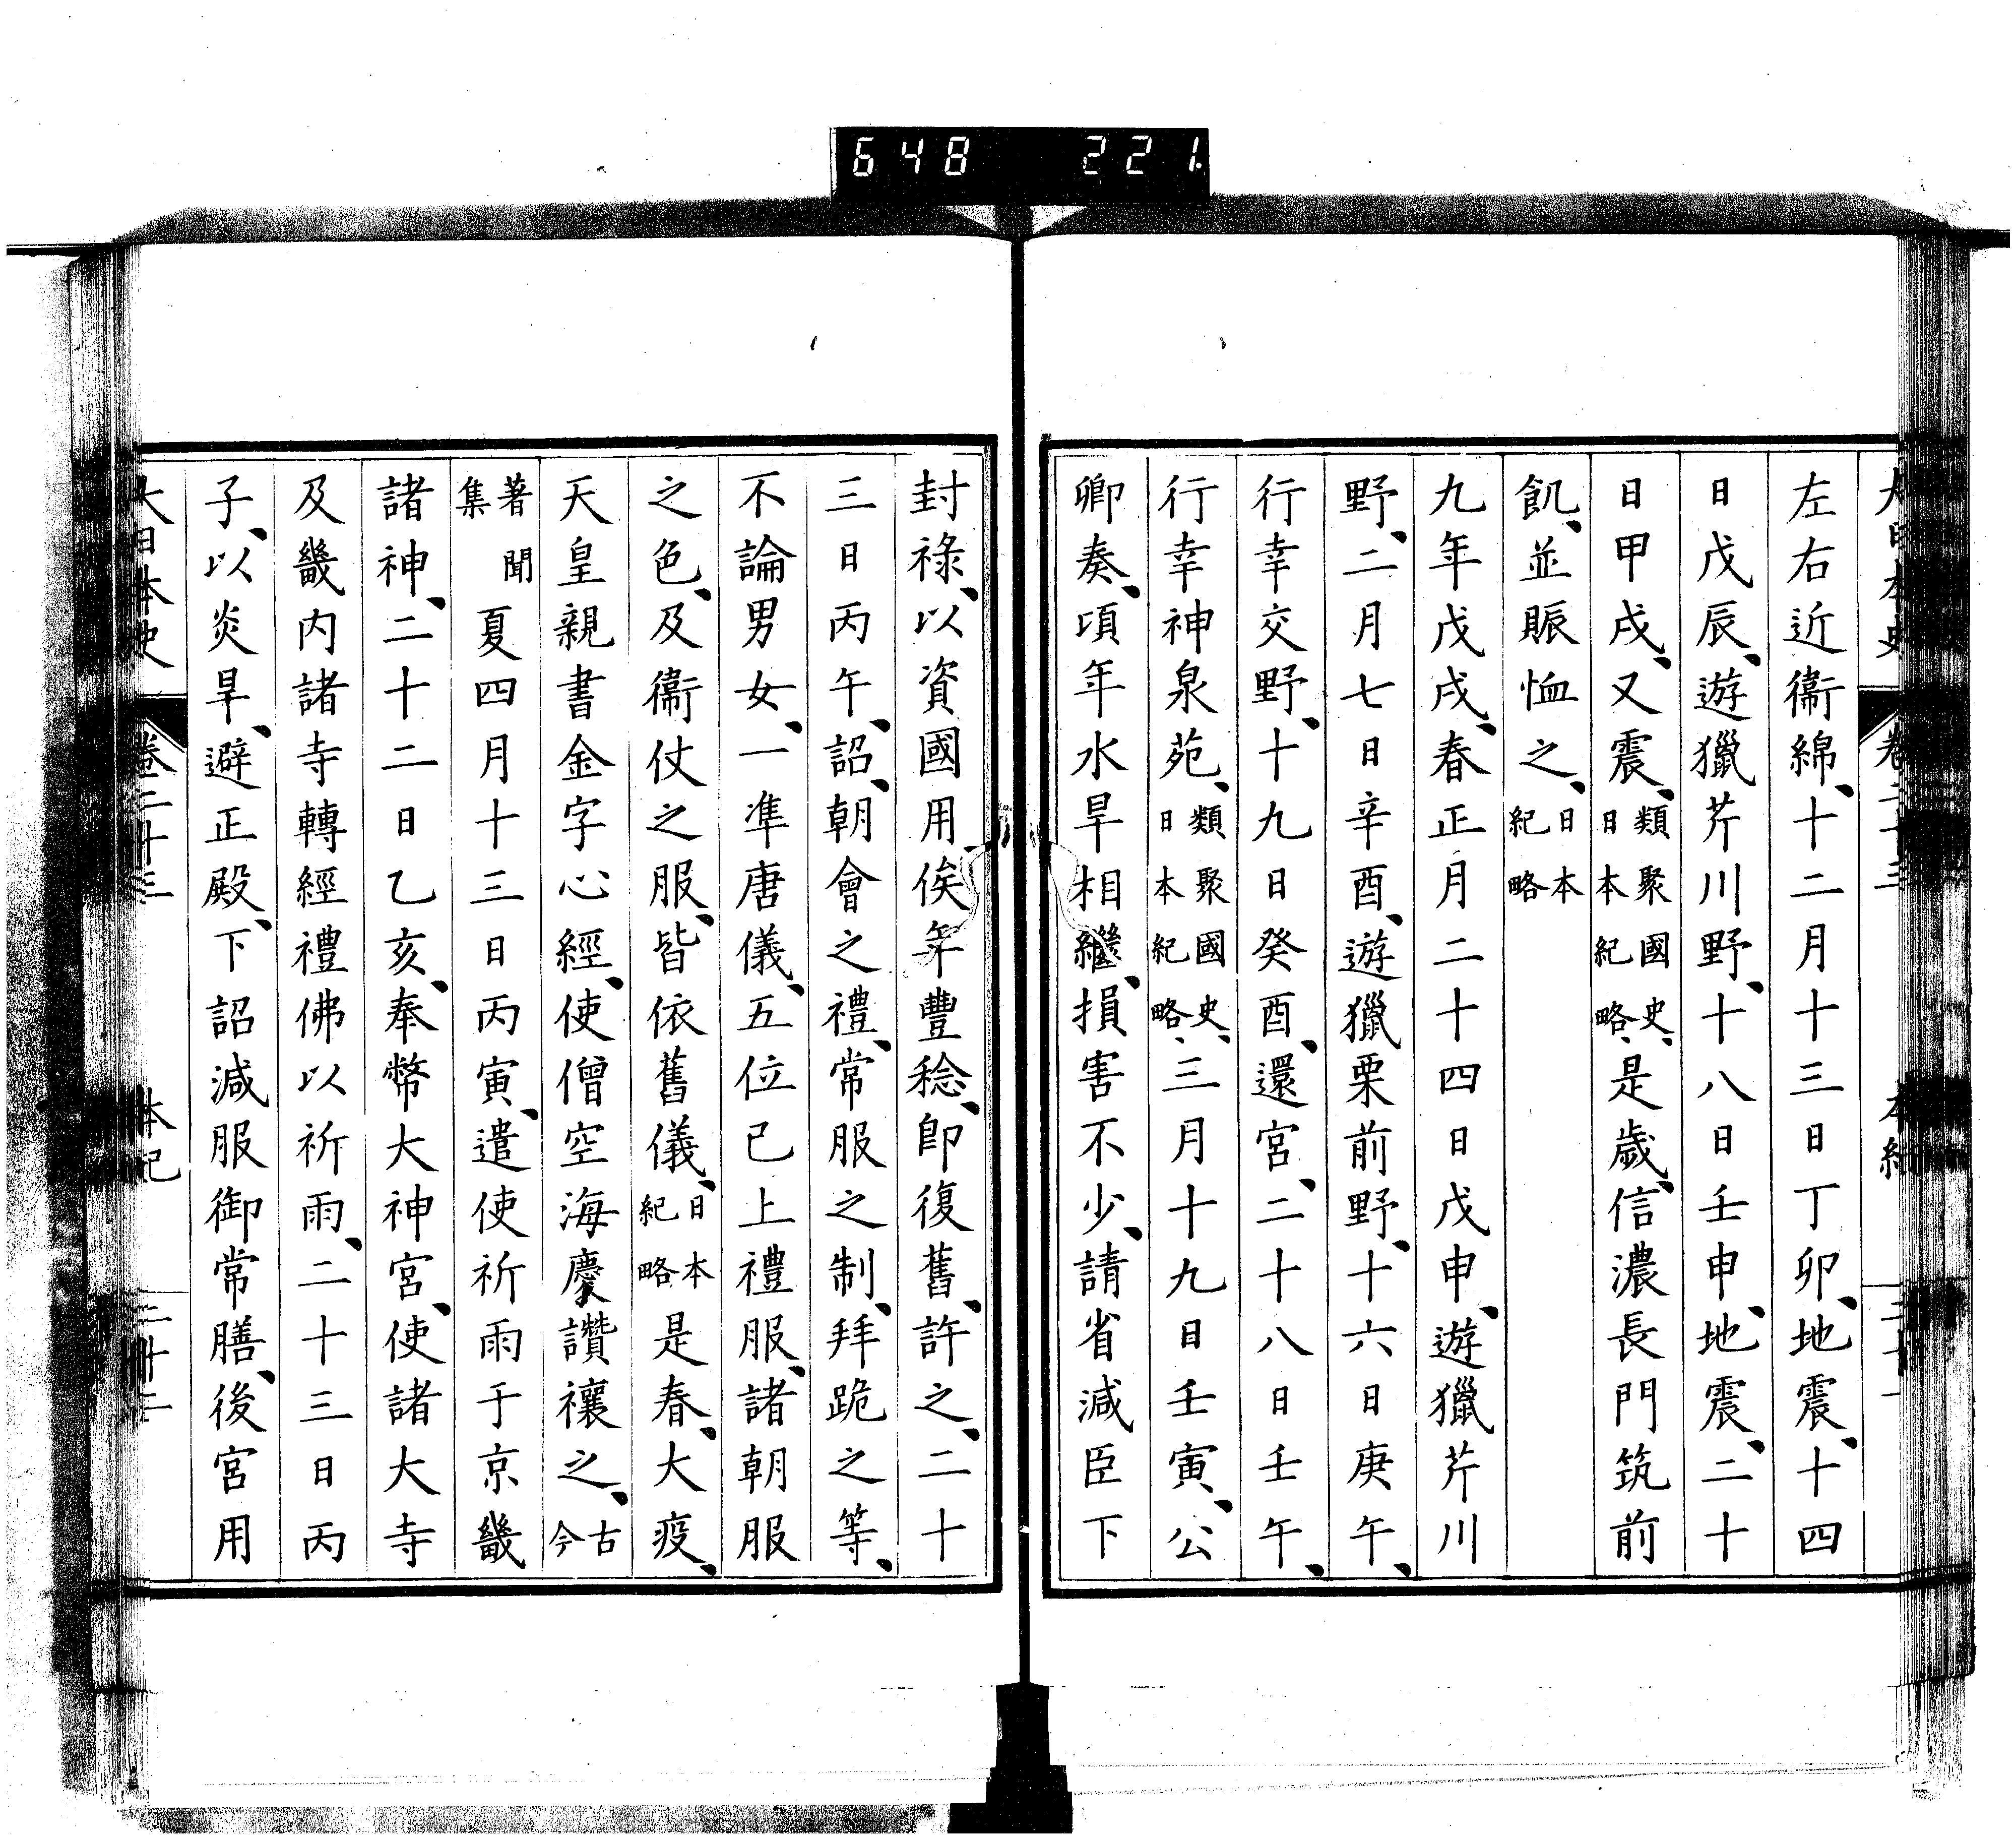 648 221
左右近衞綿、十二月十三日丁卯、地震、十四
日戊辰、遊獵芹川野、十八日壬申、地震、二十
日甲戌、又震、類聚國史、日本紀略、是歲、信濃長門筑前
飢、並賑恤之、日本紀略
九年戊戌、春正月二十四日戊申、遊獵芹川
野、二月七日辛酉、遊獵栗前野、十六日庚午、
行幸交野、十九日癸酉、還宮、二十八日壬午、
行幸神泉苑、類聚國史、日本紀略、三月十九日壬寅、公
卿奏、頃年水旱相繼、損害不少、請省減臣下
封祿、以資國用俟年豐稔、卽復舊、許之、二十
三日丙午、詔、朝會之禮、常服之制、拜跪之等、
不論男女、一準唐儀、五位已上禮服、諸朝服
之色、及衞仗之服、皆依舊儀、日本紀略是春、大疫、
天皇親書金字心經、使僧空海慶讚禳之、古今
著聞集夏四月十三日丙寅、遣使祈雨于京畿
諸神、二十二日乙亥、奉幣大神宮、使諸大寺
及畿内諸寺轉經禮佛以祈雨、二十三日丙
子、以炎旱、避正殿、下詔減服御常膳、後宮用
大日本史 卷二十三 本紀